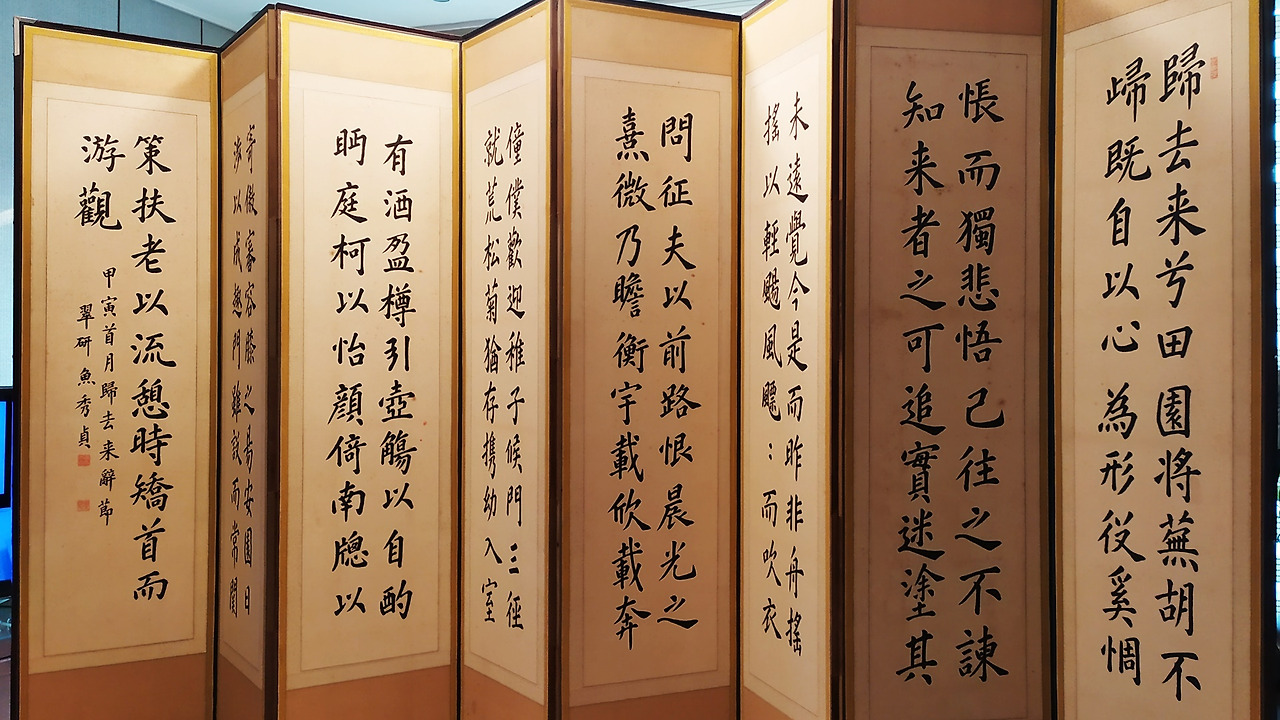 歸去来兮田園将蕪胡不
㱕既自以心為形役奚惆
悵而獨悲悟已往之不諌
知来者之可追實迷塗其
未遠覺今是而昨非舟搖
搖以輕颺風飄:而吹衣
問征夫以前路恨晨光之
熹微乃瞻衡宇載欣載奔
僮僕歡迎稚子候門三徑
就荒松菊猶存携幼入室
有酒盈樽引壺觴以自酌
眄庭柯以怡顔倚南牕以
寄傲審容膝之易安園日
涉以成趣門雖設而常關
策扶老以流憩時矯首而
游觀
甲寅首月歸去来辭節
翠研魚秀貞